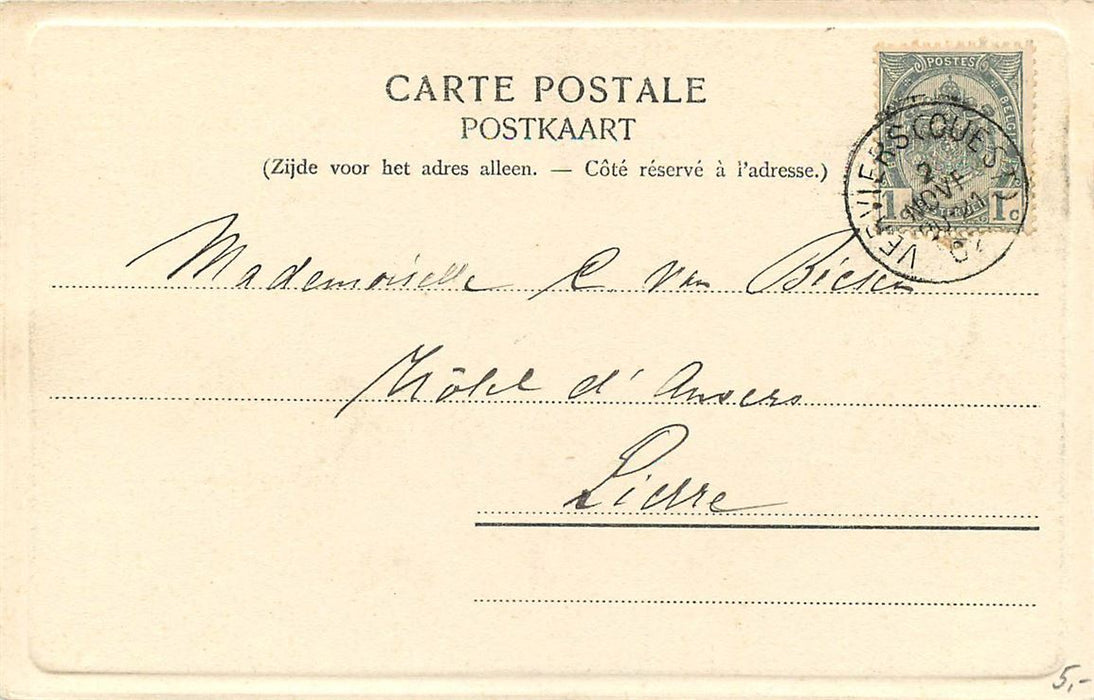 CARTE POSTALE
POSTKAART
(Zijde voor het adres alleen. — Côté réservé à l'adresse.)
POSTES
1 1 c
VERVIERS (OUEST)
2
NOVE
Mademoiselle C. Van Biesen
Hôtel d'Anvers
Lierre
5,-